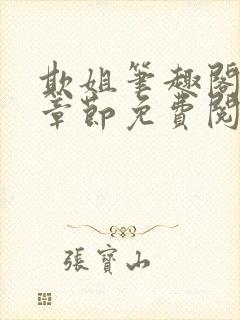 欺姐笔趣閣
章節免費閱
張寶山